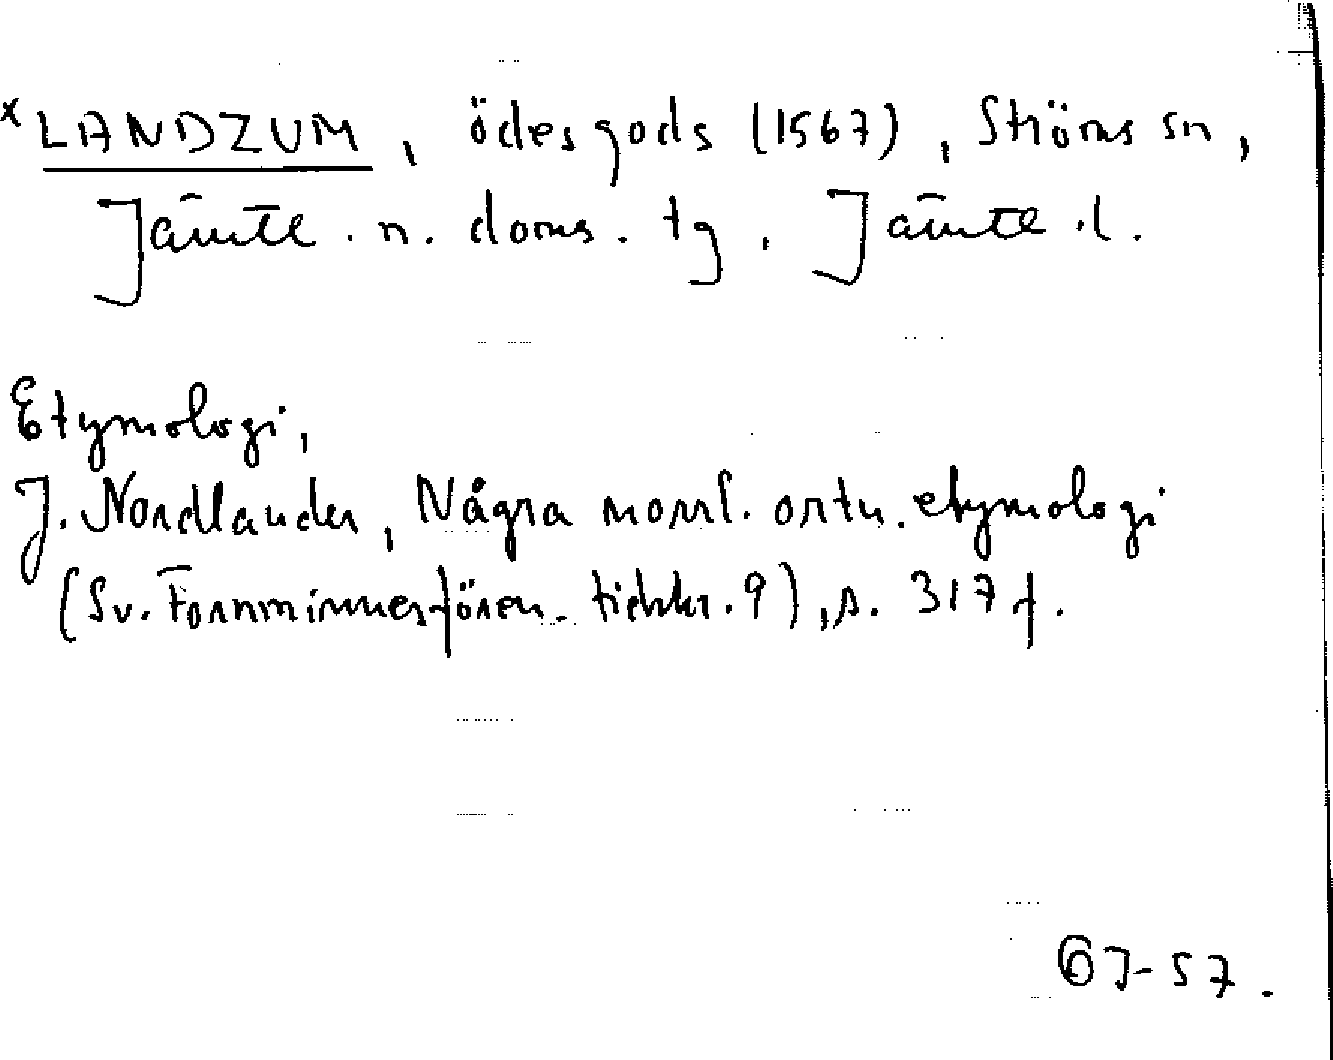 x LANDZUM, ödesgods (1567), Ströms sn,
Jämtl. n. doms. tg, Jämtl. l.
Etymologi,
J. Nordlander, Några norrl. ortn. etymologi
(Sv. Fornminnesfören. tidskr. 9), s. 317 f.
57.